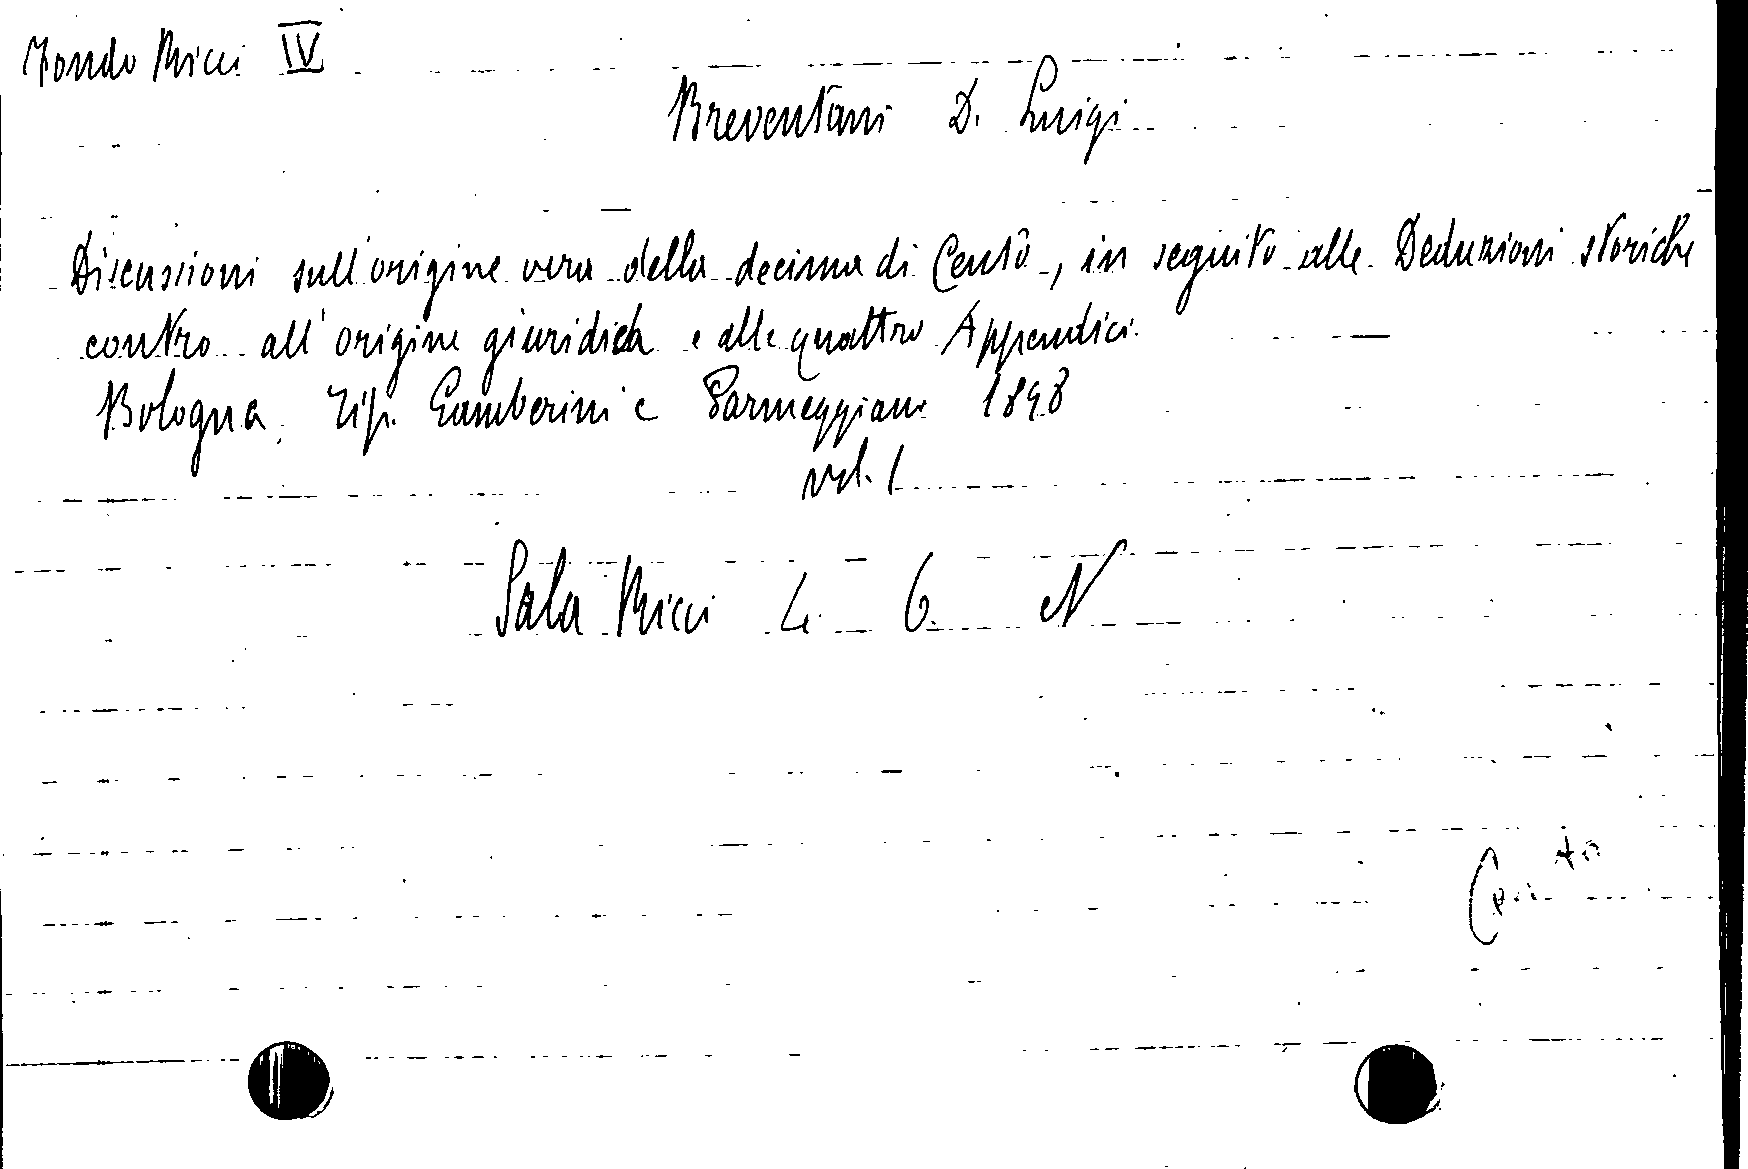 Fondo Ricci IV
Breventani D. Luigi
Discussioni sull'origine vera della decima di Cento, in seguito alle Deduzioni storiche
contro all'origine giuridica e alle quattro Appendici.
Bologna, Tip. Gamberini e Parmeggiani 1898
vol. 1
Sala Ricci L. 6. N
Cento